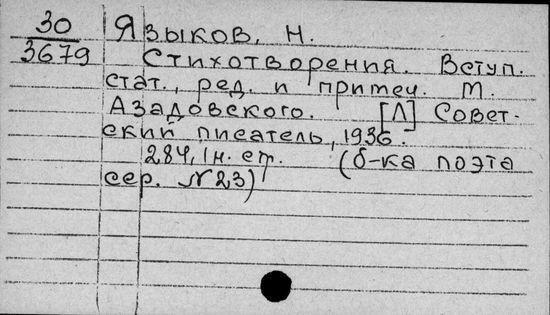 30 Языков, Н.
3679 Стихотворения. Вступ.
стат., ред. и примеч. М.
Азадовского. [Л] Совет-
ский писатель, 1936.
284, 1н. стр. (б-ка поэта
сер. №23)